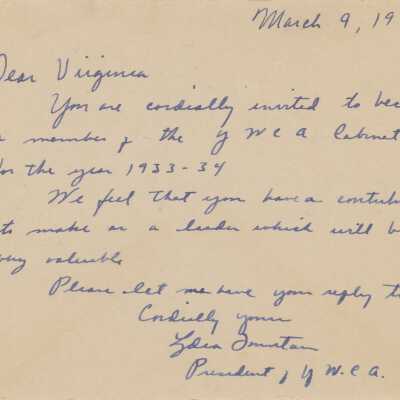 March 9, 19
Dear Virginia
You are cordially invited to bec
a member of the Y W C A Cabinet
for the year 1933-34
We feel that you have a contrib
to make as a leader which will be
very valuable
Please let me have your reply to
Cordially yours
President of Y W. C A.